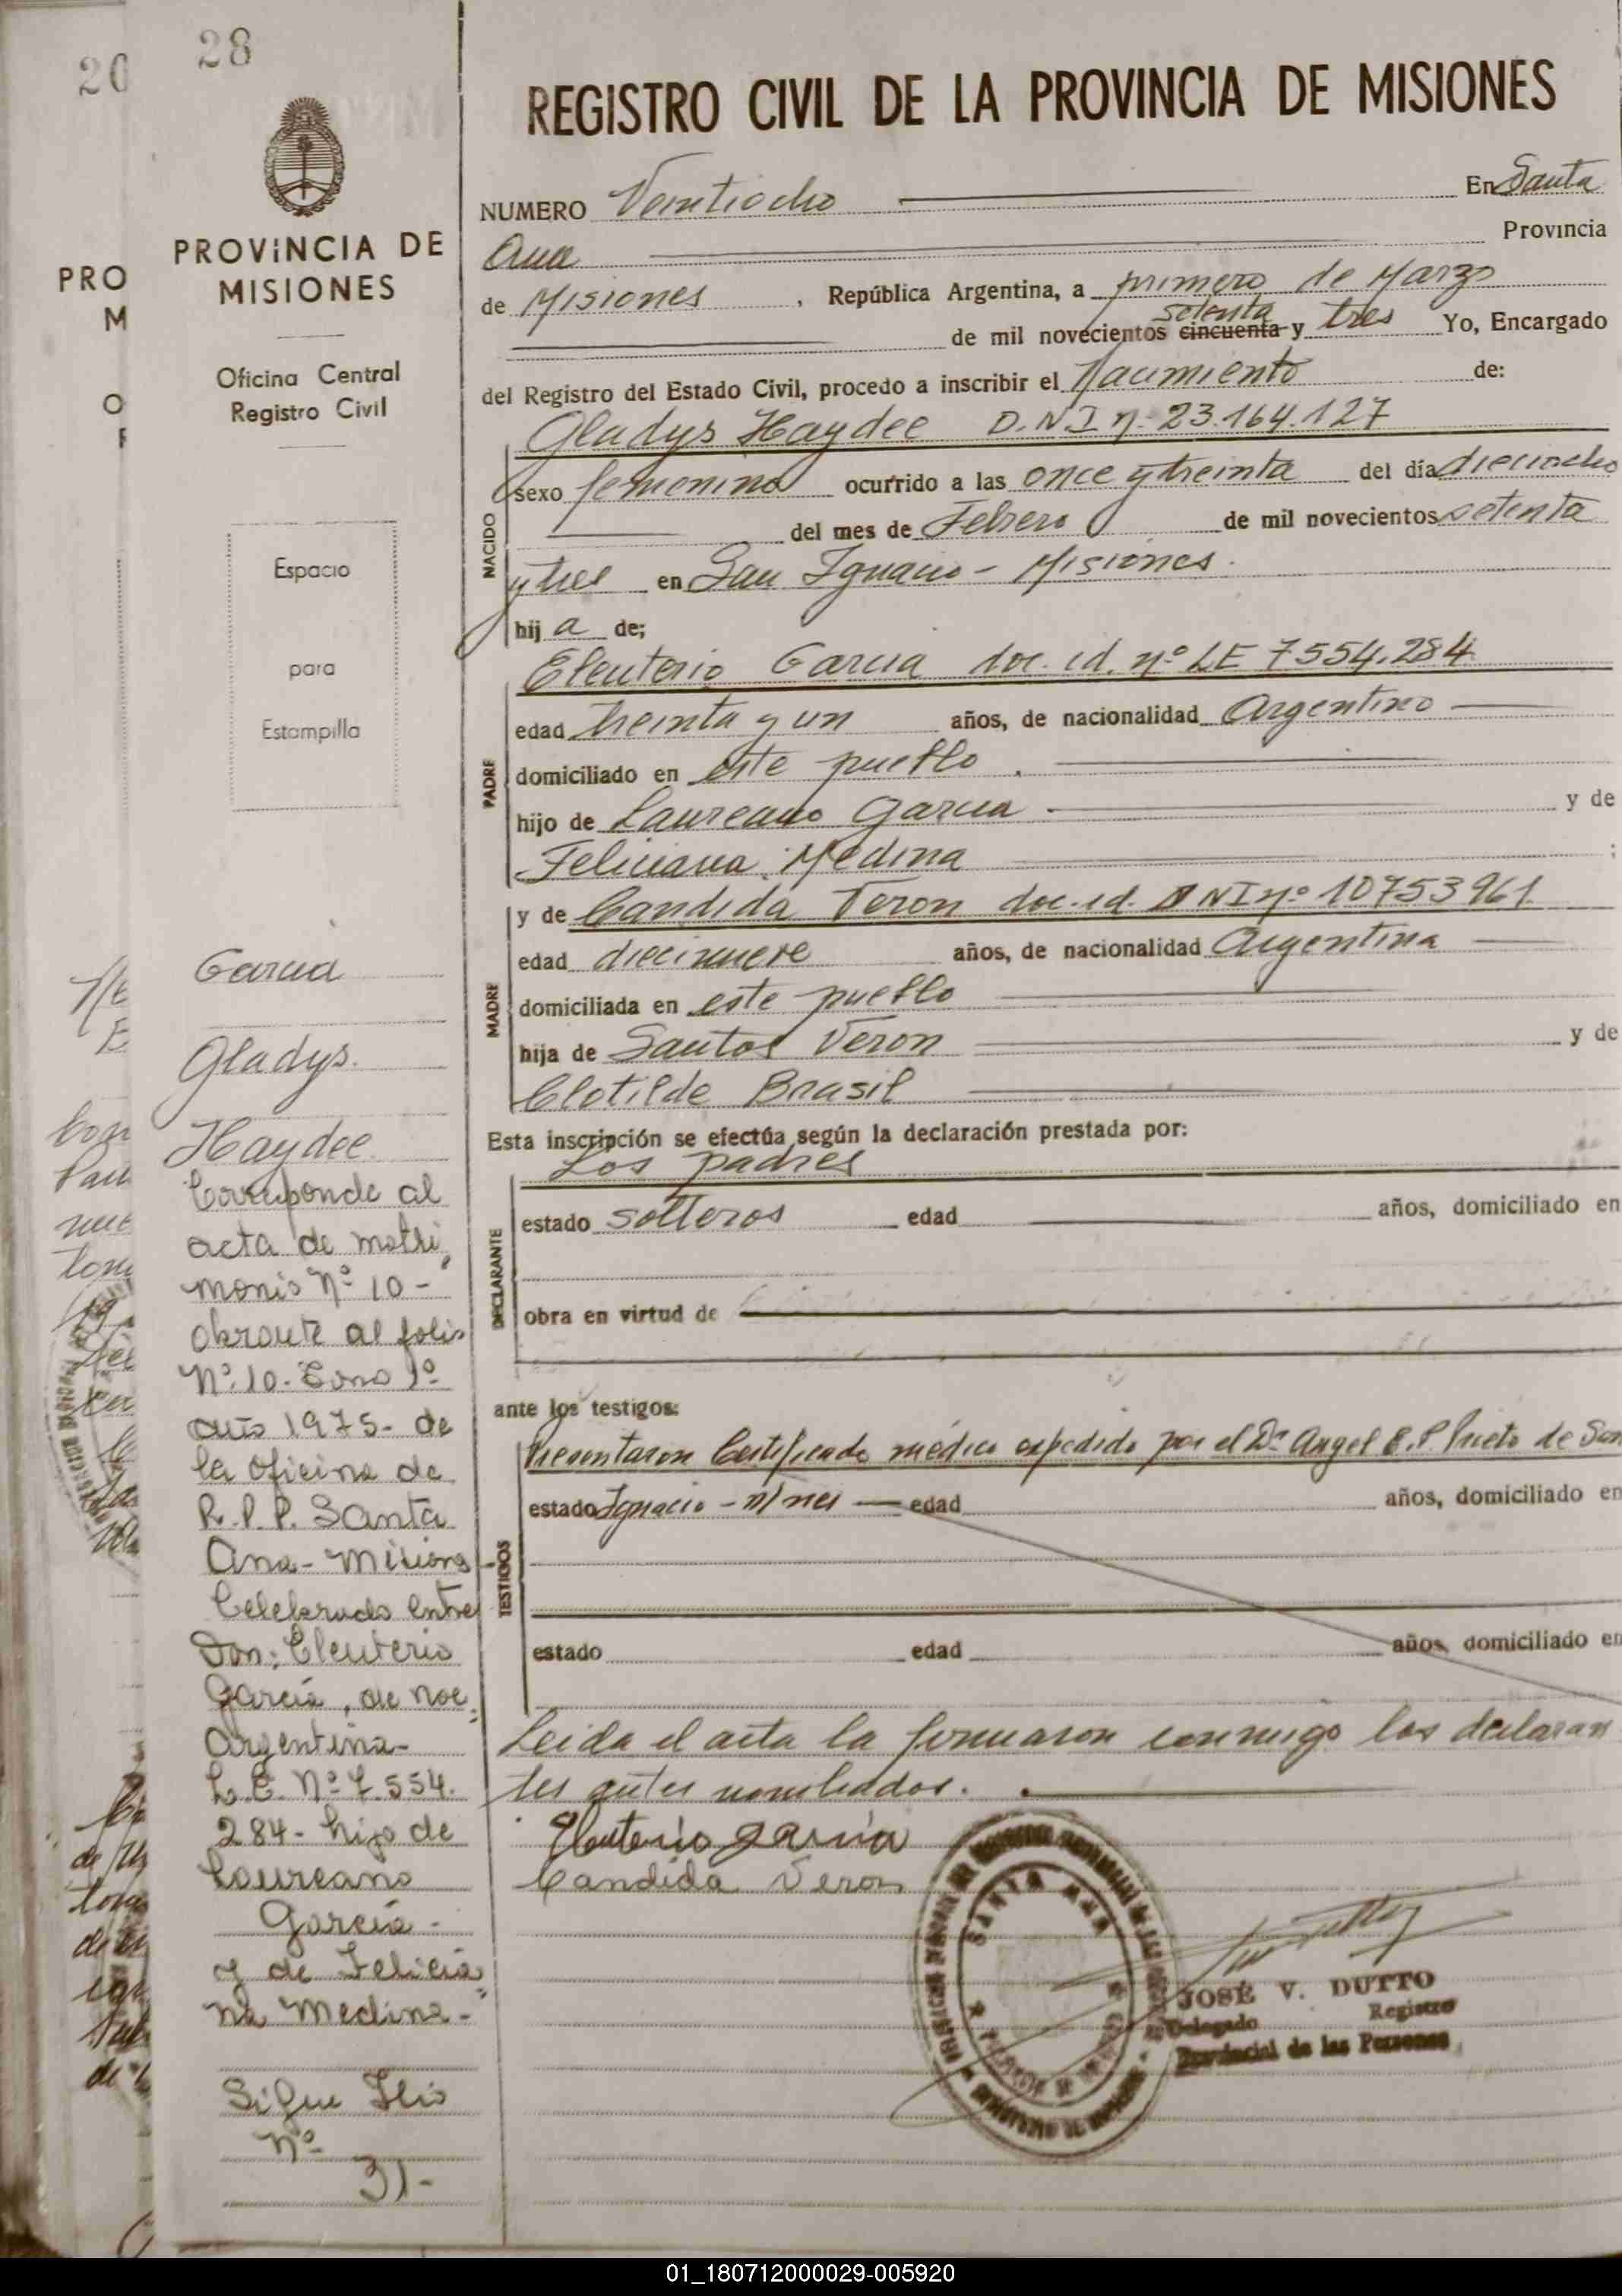 28
20
PROVINCIA DE
MISIONES
Oficina Central
Registro Civil
Espacio
para
Estampilla
PRO
M
O
REGISTRO CIVIL DE LA PROVINCIA DE MISIONES
NUMERO Veintiocho En Santa
Ana Provincia
de Misiones , República Argentina, a primero de Marzo
setenta
de mil novecientos cincuenta y tres Yo, Encargado
del Registro del Estado Civil, procedo a inscribir el Nacimiento de:
Gladys Haydee D.N.I nº 23.164.127
NACIDO
sexo femenino ocurrido a las once y treinta del día dieciocho
del mes de Febrero de mil novecientos setenta
y tres en San Ignacio - Misiones.
hij a de;
Eleuterio Garcia doc. id. nº LE 7554.284
PADRE
edad treinta y un años, de nacionalidad Argentino
domiciliado en este pueblo .
hijo de Laureano Garcia y de
Feliciana Medina ;
y de Candida Veron doc. id. DNI nº 10753961
MADRE
edad diecinueve años, de nacionalidad Argentina
domiciliada en este pueblo
hija de Santos Veron y de
Clotilde Brasil
Esta inscripción se efectúa según la declaración prestada por:
Los padres
DECLARANTE
estado solteros edad años, domiciliado en
obra en virtud de
ante los testigos:
TESTIGOS
Presentaron Certificado médico expedido por el Dr Angel E. P. Prieto de San
estado Ignacio - M/nes edad años, domiciliado en
estado edad años, domiciliado en
Leida el acta la firmaron conmigo los declaran
tes antes nombrados.
Eleuterio Garcia
Candida Veron
SANTA ANA
JOSÉ V. DUTTO
Delegado Registro
Provincial de las Personas
Garcia
Gladys.
Haydee.
Corresponde al
acta de matri
monio Nº 10 -
obrante al folio
Nº 10. Tomo 1º
año 1975- de
la oficina de
R.P.P. Santa
Ana - Misiones
Celebrado entre
Don: Eleuterio
García, de nac
Argentina-
L.E. Nº 7.554.
284- hijo de
Laureano
García -
y de Felicia
na Medina -
Sigue Flio
Nº
31-
01_180712000029-005920